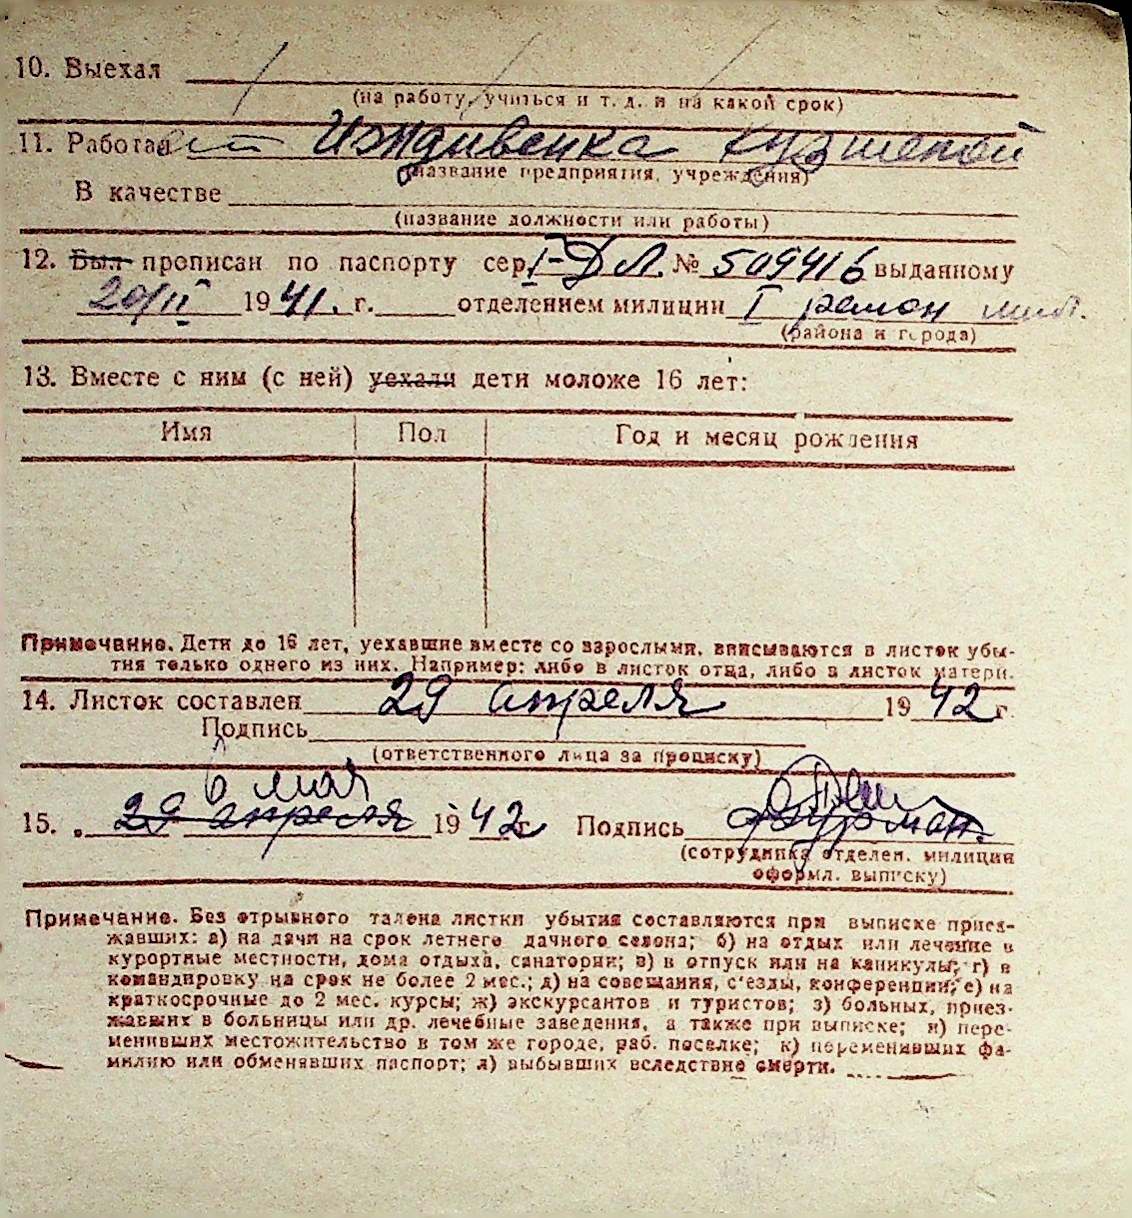 10. Выехал
(на работу, учиться и т. д. и на какой срок)
11. Работает Иждивенка
(название предприятия, учреждения)
В качестве
(название должности или работы)
12. Был прописан по паспорту сер. I-ДЛ. № 509416 выданному
20/II 1941. г. отделением милиции I район мил.
(района и города)
13. Вместе с ним (с ней) уехали дети моложе 16 лет:
Имя Пол Год и месяц рождения
Примечание. Дети до 16 лет, уехавшие вместе со взрослыми, вписываются в листок убы-
тия только одного из них. Например: либо в листок отца, либо в листок матери.
14. Листок составлен 29 апреля 1942 г.
Подпись
(ответственного лица за прописку)
6 мая
15. 29 апреля 1942 г. Подпись
(сотрудника отделен. милиции
оформл. выписку)
Примечание. Без отрывного талона листки убытия составляются при выписке приез-
жавших: а) на дачи на срок летнего дачного сезона; б) на отдых или лечение в
курортные местности, дома отдыха, санатории; в) в отпуск или на каникулы; г) в
командировку на срок не более 2 мес.; д) на совещания, с'езды, конференции; е) на
краткосрочные до 2 мес. курсы; ж) экскурсантов и туристов; з) больных, приез-
жавших в больницы или др. лечебные заведения, а также при выписке; и) пере-
менивших местожительство в том же городе, раб. поселке; к) переменивших фа-
милию или обменявших паспорт; л) выбывших вследствие смерти.